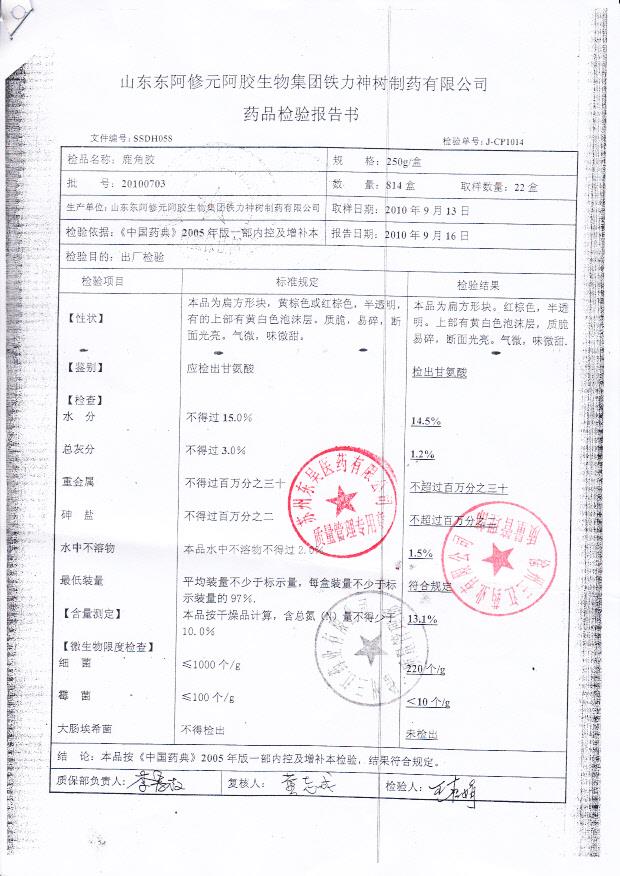 山东东阿修元阿胶生物集团铁力神树制药有限公司
药品检验报告书
文件编号: SSDH058 检验单号: J-CP1014
检品名称: 鹿角胶 规 格: 250g/盒
批 号: 20100703 数 量: 814 盒 取样数量: 22 盒
生产单位: 山东东阿修元阿胶生物集团铁力神树制药有限公司 取样日期: 2010 年 9 月 13 日
检验依据: 《中国药典》2005 年版一部内控及增补本 报告日期: 2010 年 9 月 16 日
检验目的: 出厂检验
检验项目 标准规定 检验结果
【性状】 本品为扁方形块, 黄棕色或红棕色, 半透明, 本品为扁方形块。红棕色, 半透
有的上部有黄白色泡沫层。质脆, 易碎, 断 明。上部有黄白色泡沫层。质脆
面光亮。气微, 味微甜. 易碎, 断面光亮。气微, 味微甜.
【鉴别】 应检出甘氨酸 检出甘氨酸
【检查】
水 分 不得过 15.0% 14.5%
总灰分 不得过 3.0% 1.2%
重金属 不得过百万分之三十 不超过百万分之三十
砷 盐 不得过百万分之二 不超过百万分之
水中不溶物 本品水中不溶物不得过 2. 1.5%
最低装量 平均装量不少于标示量, 每盒装量不少于标 符合规定
示装量的 97%.
【含量测定】 本品按干燥品计算, 含总氮 (N) 量不得少于 13.1%
10.0%
【微生物限度检查】
细 菌 ≤1000 个/g 220 个/g
霉 菌 ≤100 个/g <10 个/g
大肠埃希菌 不得检出 未检出
结 论: 本品按《中国药典》2005 年版一部内控及增补本检验, 结果符合规定。
质保部负责人: 复核人: 黄志成 检验人:
苏州东吴医药有限公司
质量管理专用章
三江药业有限公司
质量管理